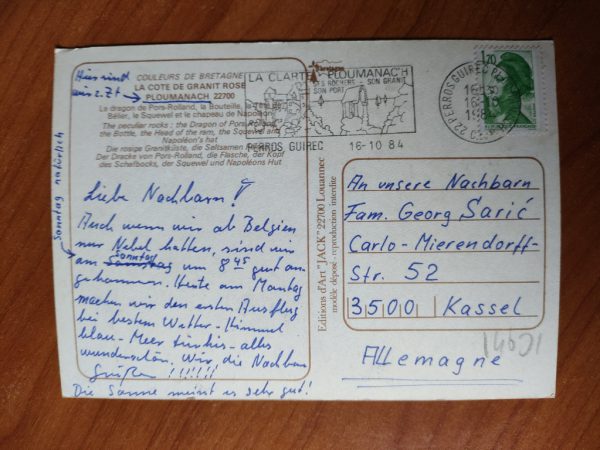 COULEURS DE BRETAGNE
LA COTE DE GRANIT ROSE
PLOUMANACH 22700
La dragon de Pors-Rolland, la Bouteille, la Tête de
Bélier, le Squewel et le chapeau de Napoléon
The peculiar rocks: the Dragon of Pors-Rolland,
the Bottle, the Head of the ram, the Squewel and
Napoléon's hat
Die rosige Granitküste, die Seltsamen
Der Dracke von Pors-Rolland, die Flasche, der Kopf
des Schafbocks, der Squewel und Napoléons Hut
Hier sind
wir z.Zt →
Sonntag natürlich
Liebe Nachbarn!
Auch wenn wir ab Belgien
nur Nebel hatten, sind wir
am Sonntag um 8 45 gut an-
gekommen. Heute am Montag
machen wir den ersten Ausflug
bei bestem Wetter - Himmel
blau - Meer türkis - alles
wunderschön. Wir die Nachbarn
Grüßen !!!!!!!
Die Sonne meint es sehr gut!
LA CLARTE PLOUMANAC'H
SES ROCHERS - SON GRANIT
SON PORT
PERROS GUIREC 16-10 84
22 PERROS-GUIREC
1,70
Editions d'Art "JACK" 22700 Louannec
modèle déposé - reproduction interdite
An unsere Nachbarn
Fam. Georg Sarić
Carlo-Mierendorff-
Str. 52
3500 Kassel
Allemagne